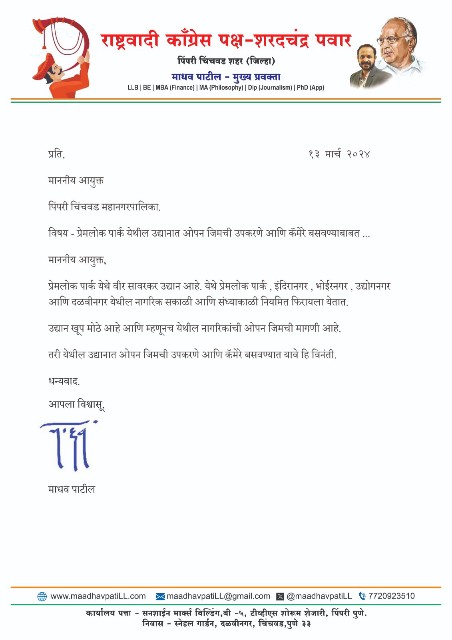 राष्ट्रवादी काँग्रेस पक्ष-शरदचंद्र पवार
पिंपरी चिंचवड शहर (जिल्हा)
माधव पाटील - मुख्य प्रवक्ता
LLB | BE | MBA (Finance) | MA (Philosophy) | Dip (Journalism) | PhD (App)
प्रति. १३ मार्च २०२४
माननीय आयुक्त
पिंपरी चिंचवड महानगरपालिका.
विषय - प्रेमलोक पार्क येथील उद्यानात ओपन जिमची उपकरणे आणि कॅमेरे बसवण्याबाबत ...
माननीय आयुक्त,
प्रेमलोक पार्क येथे वीर सावरकर उद्यान आहे. येथे प्रेमलोक पार्क , इंदिरानगर , भोईरनगर , उद्योगनगर
आणि दळवीनगर येथील नागरिक सकाळी आणि संध्याकाळी नियमित फिरायला येतात.
उद्यान खूप मोठे आहे आणि म्हणूनच येथील नागरिकांची ओपन जिमची मागणी आहे.
तरी येथील उद्यानात ओपन जिमची उपकरणे आणि कॅमेरे बसवण्यात यावे हि विनंती.
धन्यवाद.
आपला विश्वासू,
माधव पाटील
www.maadhavpatiLL.com maadhavpatiLL@gmail.com @maadhavpatiLL 7720923510
कार्यालय पत्ता - सनशाईन मार्क्स बिल्डिंग,बी -५, टीव्हीएस शोरूम शेजारी, पिंपरी पुणे.
निवास - स्नेहल गार्डन, दळवीनगर, चिंचवड,पुणे ३३